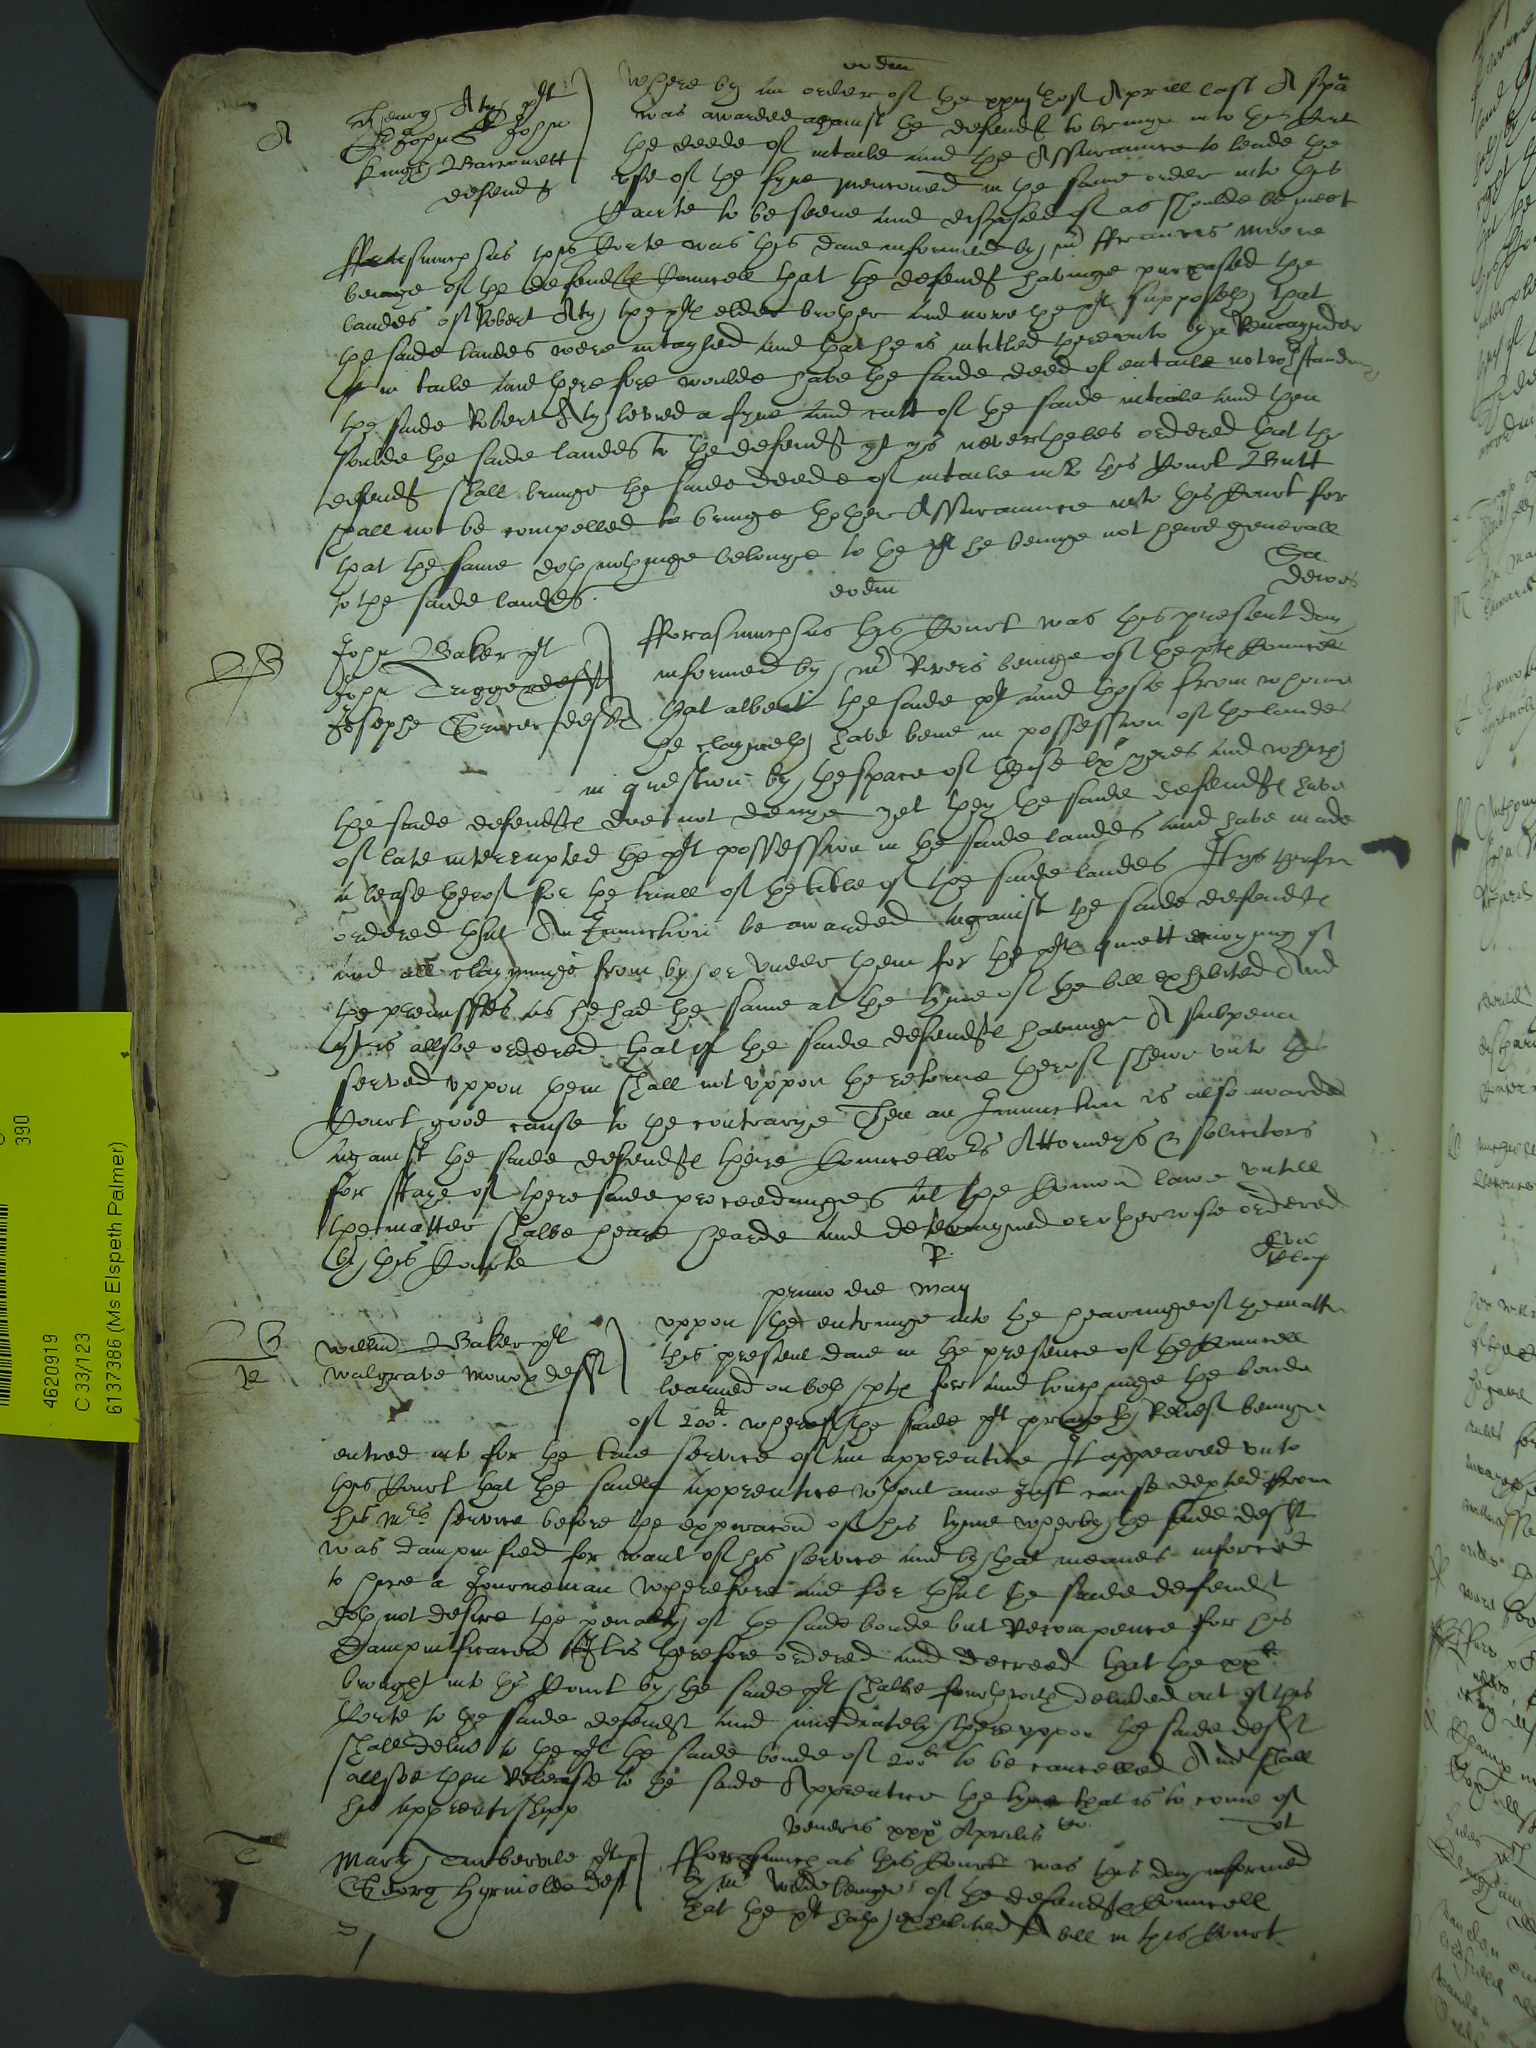 eodem
A
Henry Aty plt
John
knight Barronett
defendt
Where by an order of the of Aprill last A spa
was awarded against the defendt to bringe into this Court
the deede of intaile and the Assuraunce to leade the
use of the fyne mencioned in the same order into this
Courte to be seene and disposed of as shoulde be meet
fforasmuch as this Courte was this daie informed by mr ffrauncis Moore
beinge of the defendtes Councell that the defendt havinge purchased the
landes of Robert Aty the plt elder brother and nowe the plt supposeth that
the saide landes were intayled and that he is intitled thereunto by a Remaynder
in taile and therefore woulde have the saide deed of entaile notwthstandinge
the saide Robert Aty levied a fyne and cutt of the saide intaile and then
soulde the saide landes to the defendt yt ys neverthelesse ordered that the
defendt shall bringe the saide deede of intaile into this Court Butt
shall not be compelled to bringe thother Assuraunce into this Court for
that the same doth nothinge belonge to the plt he beinge not heire generall
to the saide landes.
eodem
B
John Baker plt
John Trigger deffte
Josephe deffte
fforasmuch as this Court was this present day
informed by mr Rivers beinge of the pltes Councell
that albeit the saide plt and those from whome
he claymeth have bene in possession of the landes
in question by the space of these lx yeres and which
the saide defendtes doe not denye yet they the saide defendtes have
of late interrupted the plt possession in the saide landes and have made
a lease therof for the triall of the title of the saide landes It ys therfore
ordered that An Iniunction be awarded against the saide defendtes
and all clayminge from by or under them for the pltes quiett enioyinge of
the premisses as he had the same at the tyme of the bill exhibited And
yt is allsoe ordered that if the saide defendtes havinge A subpena
served uppon them shall not uppon the retorne therof shewe unto this
Court good cause to the contrarye Then an Iniunction is also awarded
against the saide defendtes theire Councellors Attorneys & solicitors
for staye of there saide proceedinges at the Comon lawe untill
the matter shalbe heare hearde and determyned or otherwise ordered
by this Courte
R
primo die May
B
Willm Baker plt
Walgrave deft
uppon the entringe into the hearinge of the matter
this present daie in the presence of the Councell
learned on both ptes for and touchinge the bonde
of 200li wherof the saide plt prayeth Relief beinge
entred into for the true service of an apprentice It appeared unto
this Court that the saide apprentice wthout anie just cause depted from
his mrs service before the expiracon of his tyme wherby the saide deft
was dampnified for want of his service and by that meanes inforced
to hyre a Journeman wherefore and for that the saide defendt
doth not desire the penalty of the saide bonde but Recompence for his
dampnificacon It is therefore ordered and decreed that the xxli
brought into this Court by the saide plt shalbe forthwith delivered out of this
Courte to the saide defendt and imediately thereuppon the saide deft
shall delivr to the plt the saide bonde of 200li to be cancelled And shall
allsoe then Release to the saide Apprentice the tyme that is to come of
his apprentishipp
veneris xxxo Aprilis
T
Mary Turbervile plt
Georg deft
fforasmuch as this Court was this day informed
by mr beinge of the defendtes Councell
that the plt hath exhibited A bill in this Court
390
4620919
C 33/123
6137386 (Ms Elspeth Palmer)